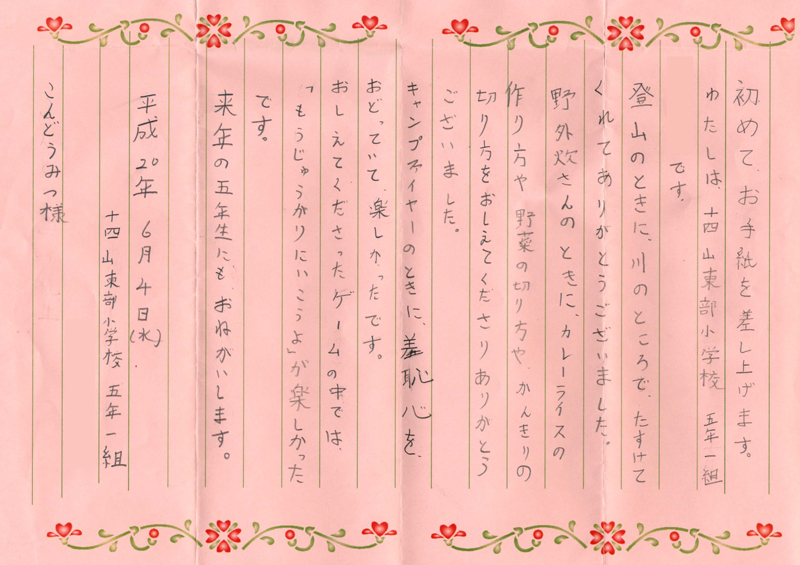 初めて、お手紙を差し上げます。
わたしは、十四山東部小学校 五年一組
です。
登山のときに、川のところで、たすけて
くれてありがとうございました。
野外炊さんのときに、カレーライスの
作り方や 野菜の切り方や、かんきりの
切り方をおしえてくださりありがとう
ございました。
キャンプファイヤーのときに、羞恥心を、
おどっていて、楽しかったです。
おしえてくださったゲームの中では、
「もうじゅうがりにいこうよ」が楽しかった
です。
来年の五年生にも、おねがいします。
平成20年 6月4日(水).
十四山東部小学校 五年一組
こんどうみつ様